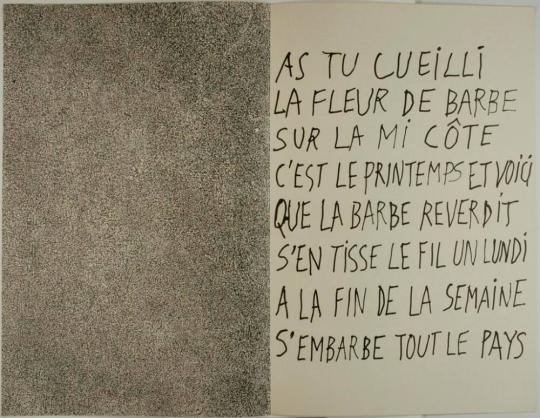 AS TU CUEILLI
LA FLEUR DE BARBE
SUR LA MI CÔTE
C'EST LE PRINTEMPS ET VOICI
QUE LA BARBE REVERDIT
S'EN TISSE LE FIL UN LUNDI
A LA FIN DE LA SEMAINE
S'EMBARBE TOUT LE PAYS